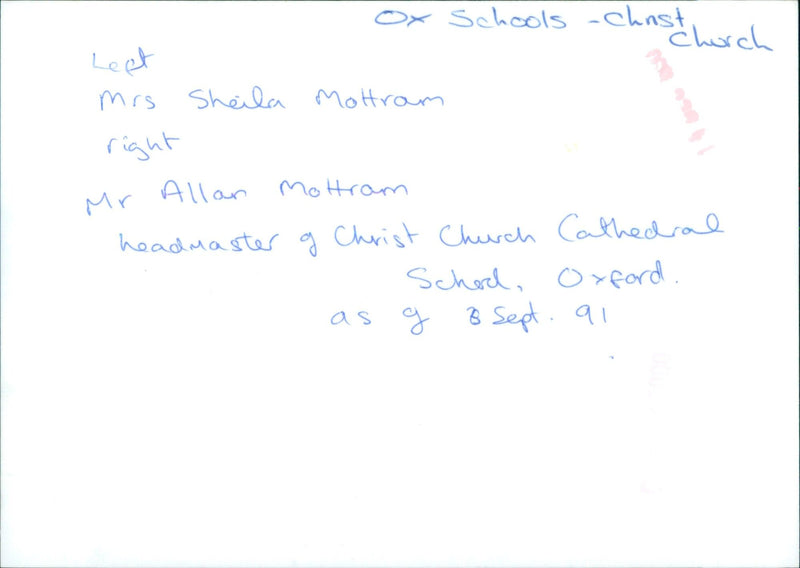 Ox Schools - Christ
Church
Left
Mrs Sheila Mottram
right
Mr Allan Mottram
headmaster of Christ Church Cathedral
School, Oxford.
as of Sept. 91